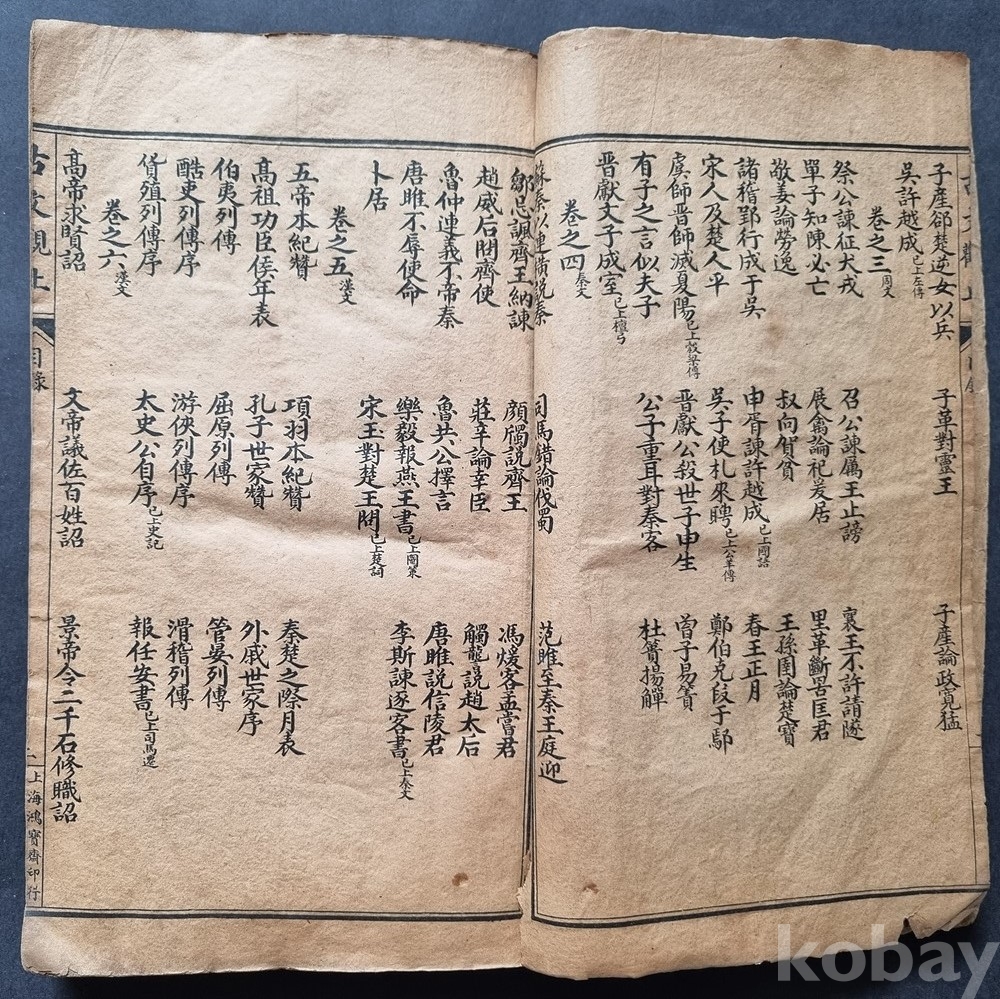 子產郤楚逆女以兵 子革對靈王 子產論政寬猛
吳許越成已上左傳
卷之三周文
祭公諫征犬戎 召公諫厲王止謗 襄王不許請隧
單子知陳必亡 展禽論祀爰居 里革斷罟匡君
敬姜論勞逸 叔向賀貧 王孫圉論楚寶
諸稽郢行成于吳 申胥諫許越成已上國語 春王正月
宋人及楚人平 吳子使札來聘已上公羊傳 鄭伯克段于鄢
虞師晋師滅夏陽已上穀梁傳 晋獻公殺世子申生 曾子易簀
有子之言似夫子 公子重耳對秦客 杜蕢揚觶
晋獻文子成室已上檀弓
卷之四秦文
蘇秦以連橫說秦 司馬錯論伐蜀 范睢至秦王庭迎
鄒忌諷齊王納諫 顏斶說齊王 馮煖客孟嘗君
趙威后問齊使 莊辛論幸臣 觸龍說趙太后
魯仲連義不帝秦 魯共公擇言 唐睢說信陵君
唐睢不辱使命 樂毅報燕王書已上國策 李斯諫逐客書已上秦文
卜居 宋玉對楚王問已上楚詞
卷之五漢文
五帝本紀贊 項羽本紀贊 秦楚之際月表
高祖功臣侯年表 孔子世家贊 外戚世家序
伯夷列傳 屈原列傳 管晏列傳
酷吏列傳序 游俠列傳序 滑稽列傳
貨殖列傳序 太史公自序已上史記 報任安書已上司馬遷
卷之六漢文
高帝求賢詔 文帝議佐百姓詔 景帝令二千石修職詔
古文觀止 目錄 二 上海鴻寶齋印行
kobay